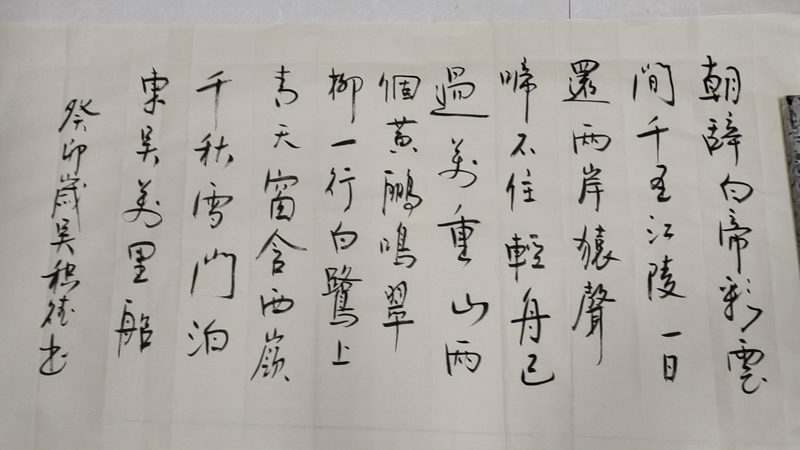 朝辞白帝彩雲
間千里江陵一日
還兩岸猿聲
啼不住輕舟已
過萬重山兩
個黃鸝鳴翠
柳一行白鷺上
青天窗含西嶺
千秋雪門泊
東吳萬里船
癸卯歲吳積德書